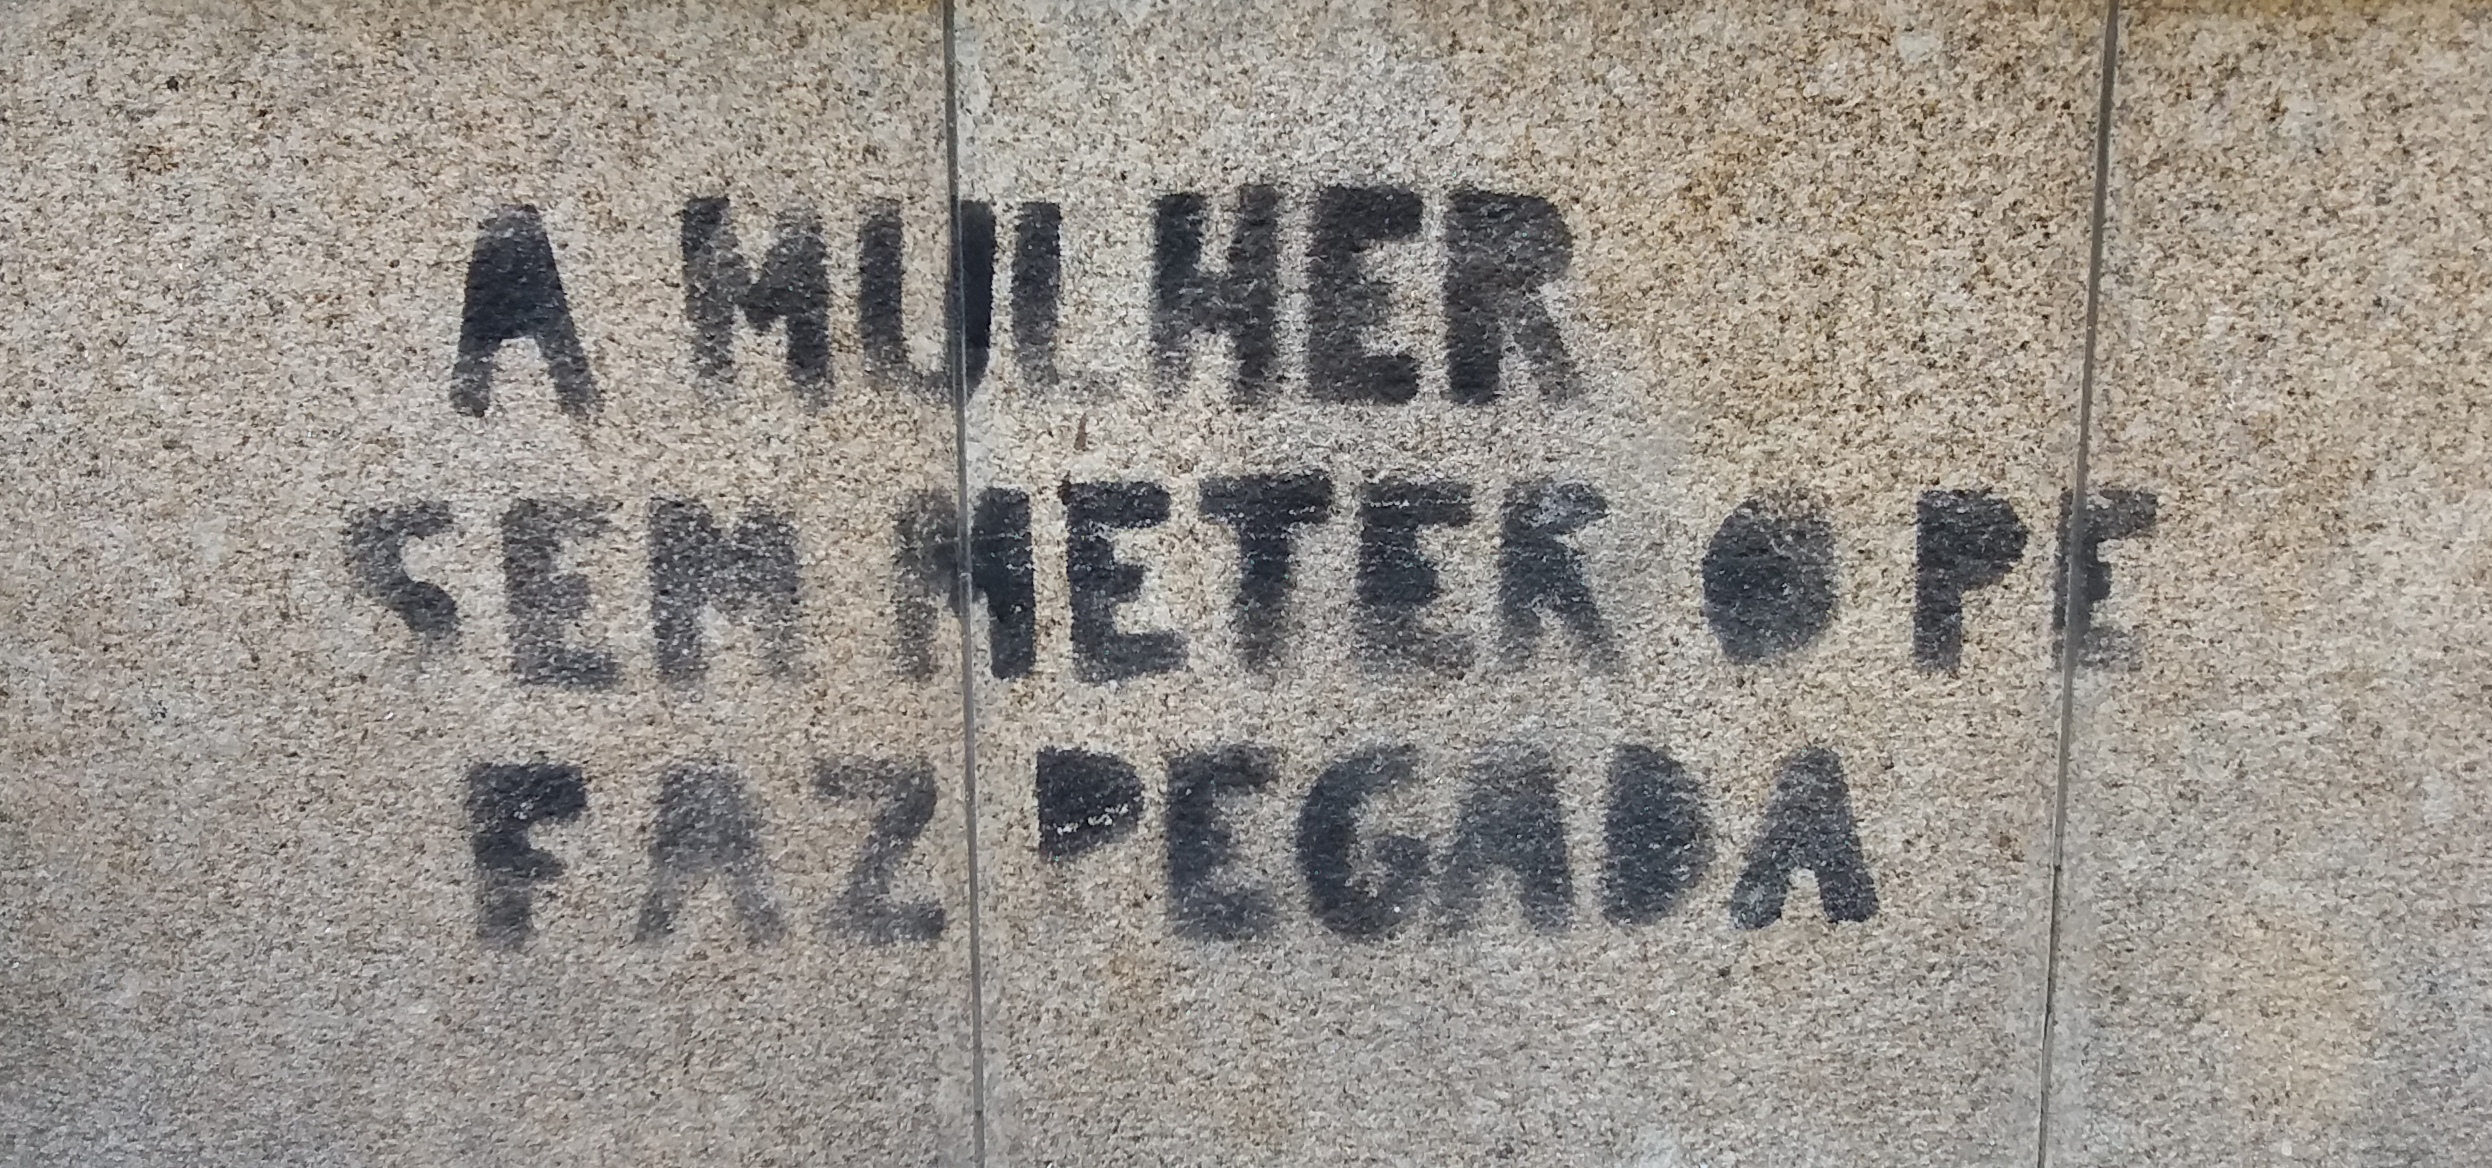 A MULHER
SEM METER O PE
FAZ PEGADA